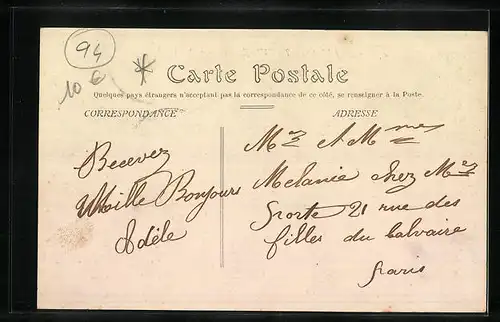 94
10 €
Carte Postale
Quelques pays étrangers n'acceptant pas la correspondance de ce côté, se renseigner à la Poste.
CORRESPONDANCE
ADRESSE
Recevez
Mille Bonjours
Adèle
Mr et Mmes
Melanie chez Mr
21 rue des
filles du Calvaire
Paris